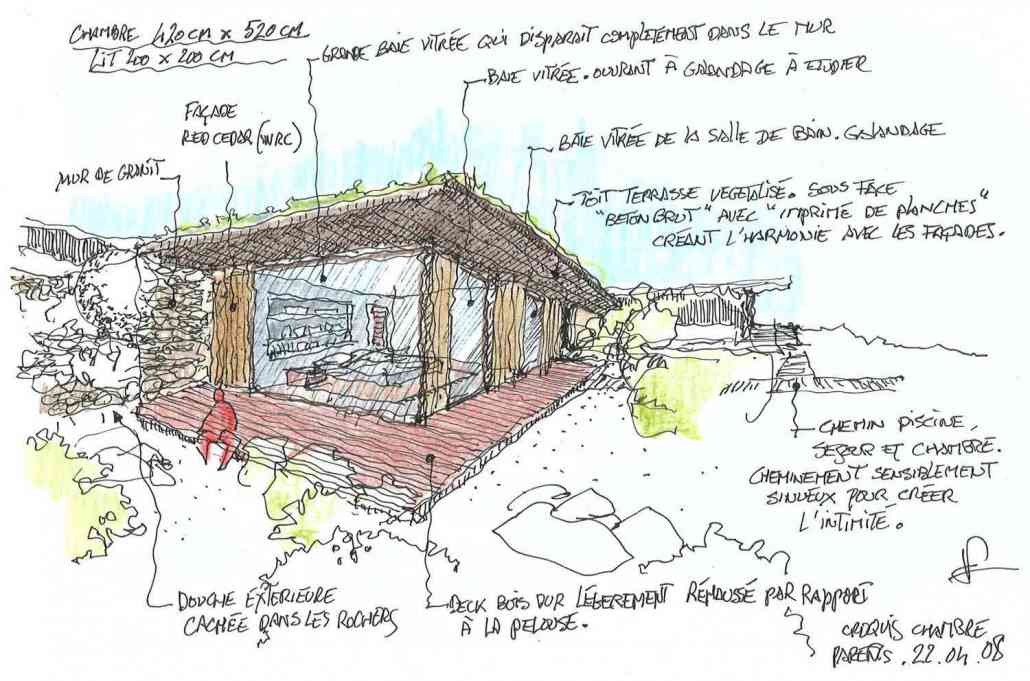 CHAMBRE 420 CM x 520 CM
LIT 200 x 200 CM
GRANDE BAIE VITRÉE QUI DISPARAIT COMPLETEMENT DANS LE MUR
BAIE VITRÉE. OUVRANT À GALANDAGE À ETUDIER
FAÇADE
RED CEDAR (WRC)
BAIE VITRÉE DE LA SALLE DE BAIN. GALANDAGE
MUR DE GRANIT
TOIT TERRASSE VEGETALISÉ. SOUS FACE
"BETON BRUT" AVEC "IMPRIMÉ DE PLANCHES"
CRÉANT L'HARMONIE AVEC LES FAÇADES.
CHEMIN PISCINE,
SEJOUR ET CHAMBRE.
CHEMINEMENT SENSIBLEMENT
SINUEUX POUR CRÉER
L'INTIMITÉ.
DOUCHE EXTERIEURE
CACHÉE DANS LES ROCHERS
DECK BOIS DUR LÉGEREMENT REHAUSSÉ PAR RAPPORT
À LA PELOUSE.
CROQUIS CHAMBRE
PARENTS. 22.04.08